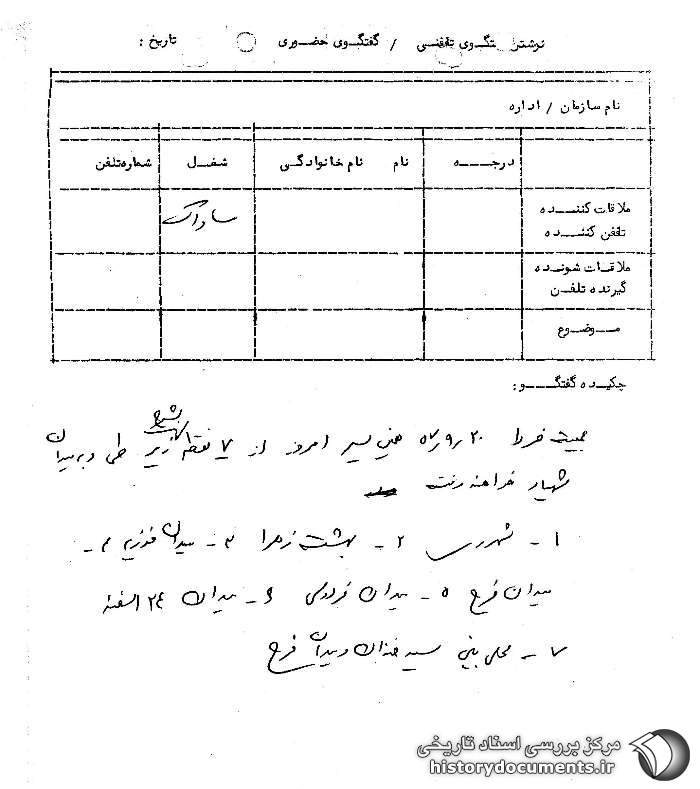 نوشتن گفتگوی تلفنی / گفتگوی حضوری تاریخ :
نام سازمان / اداره
درجه نام نام خانوادگی شغل شماره تلفن
ملاقات کننده
تلفن کننده
ساواک
ملاقات شونده
گیرنده تلفن
موضوع
چکیده گفتگو :
جمعیت فردا ۵۷/۹/۲۰ همین مسیر امروز از ۷ نقطه بشرح زیر طی و به میدان
شهیاد خواهند رفت
۱- شهرری ۲- بهشت زهرا ۳- میدان فوزیه ۴-
میدان فرح ۵- میدان فردوسی ۶- میدان ۲۴ اسفند
۷- محلی بین سید خندان و میدان فرح
مرکز بررسی اسناد تاریخی
historydocuments.ir